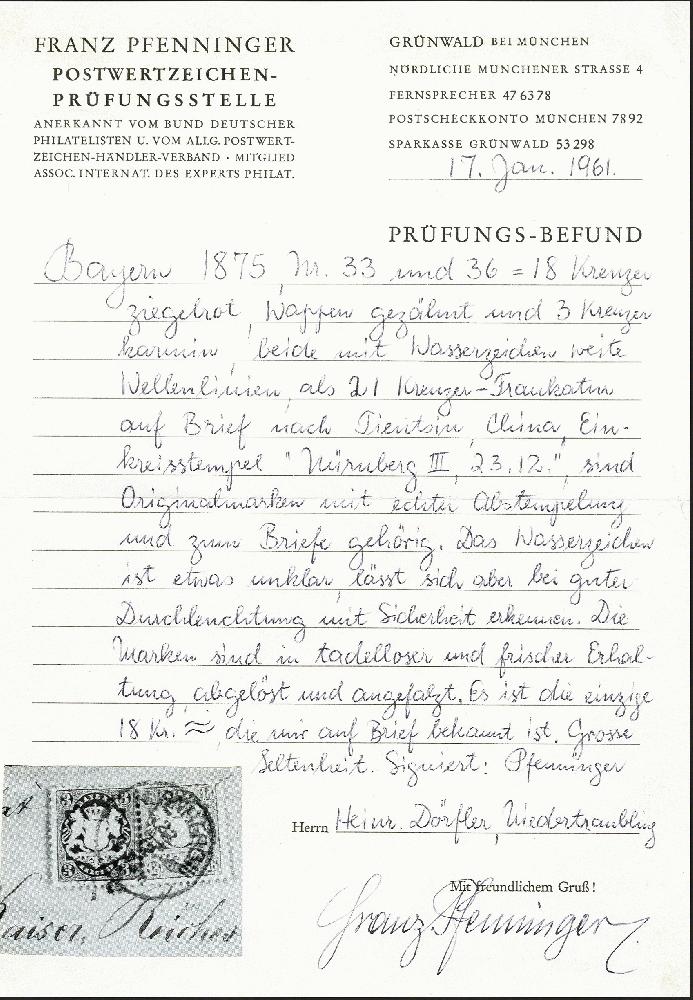 FRANZ PFENNINGER
POSTWERTZEICHEN-
PRÜFUNGSSTELLE
ANERKANNT VOM BUND DEUTSCHER
PHILATELISTEN U. VOM ALLG. POSTWERT-
ZEICHEN-HÄNDLER-VERBAND · MITGLIED
ASSOC. INTERNAT. DES EXPERTS PHILAT.
GRÜNWALD BEI MÜNCHEN
NÖRDLICHE MÜNCHENER STRASSE 4
FERNSPRECHER 47 63 78
POSTSCHECKKONTO MÜNCHEN 7892
SPARKASSE GRÜNWALD 53 298
17. Jan. 1961.
PRÜFUNGS-BEFUND
Bayern 1875, Nr. 33 und 36 = 18 Kreuzer
ziegelrot, Wappen gezähnt und 3 Kreuzer
karmin, beide mit Wasserzeichen weite
Wellenlinien, als 21 Kreuzer-Frankatur
auf Brief nach Tientsin, China, Ein-
kreisstempel "Nürnberg III, 23.12.", sind
Originalmarken mit echter Abstempelung
und zum Briefe gehörig. Das Wasserzeichen
ist etwas unklar, lässt sich aber bei guter
Durchleuchtung mit Sicherheit erkennen. Die
Marken sind in tadelloser und frischer Erhal-
tung, abgelöst und angefalzt. Es ist die einzige
18 Kr. ≈, die mir auf Brief bekannt ist. Grosse
Seltenheit. Signiert: Pfenninger
Herrn Heinr. Dörfler, Niedertraubling
Mit freundlichem Gruß!
Franz Pfenninger
Kaiser.